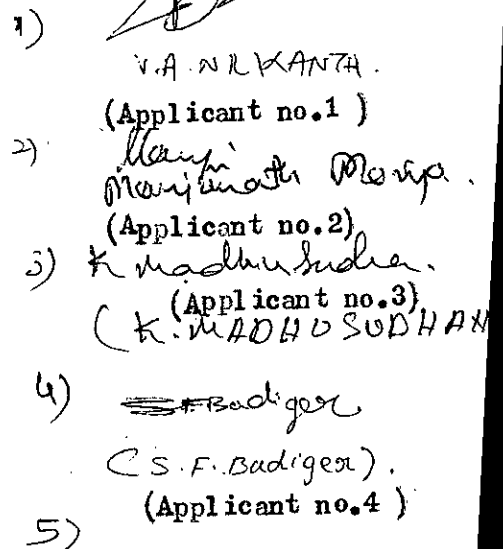 1)
V.A. NILKANTH.
(Applicant no.1 )
2)
Manjunath Moriya.
(Applicant no.2)
3) K Madhu Sudha.
(Applicant no.3)
(K. MADHU SUDHAN
4) S.F. Badiger
(S.F. Badiger).
(Applicant no.4 )
5)